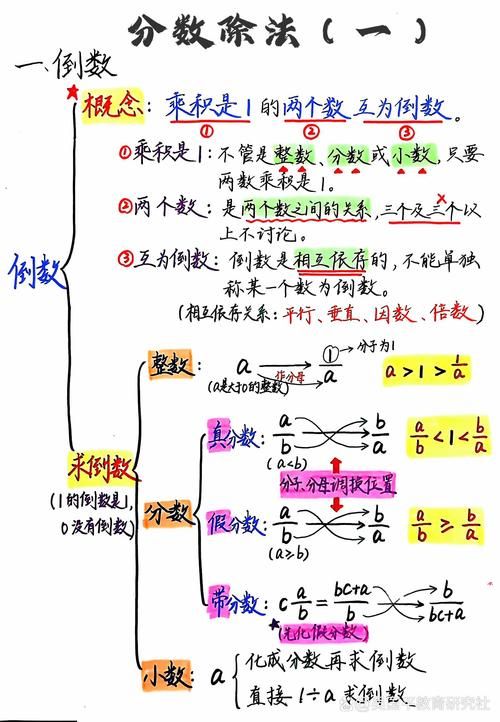 分数除法(一)
一.倒数
倒数
概念:乘积是1的两个数互为倒数。
① ② ③
①乘积是1:不管是整数、分数或小数,只要
两数乘积是1。
②两个数:是两个数之间的关系,三个及三个以
上不讨论。
③互为倒数:倒数是相互依存的,不能单独
称某一个数为倒数。
(相互依存关系:平行、垂直、因数、倍数)
求倒数
(1的倒数是1,
0没有倒数)
整数: a → 1/a → 分子为1
作分母
(a是大于0的整数)
a>1>1/a
分数
真分数: a/b b/a
(a<b)
a/b<1<b/a
分子、分母调换位置
假分数: a/b b/a
(a≥b)
a/b≥b/a
带分数: c a/b = bc+a/b → b/bc+a
(先化假分数)
小数: a { 化成分数再求倒数
直接1÷a求倒数